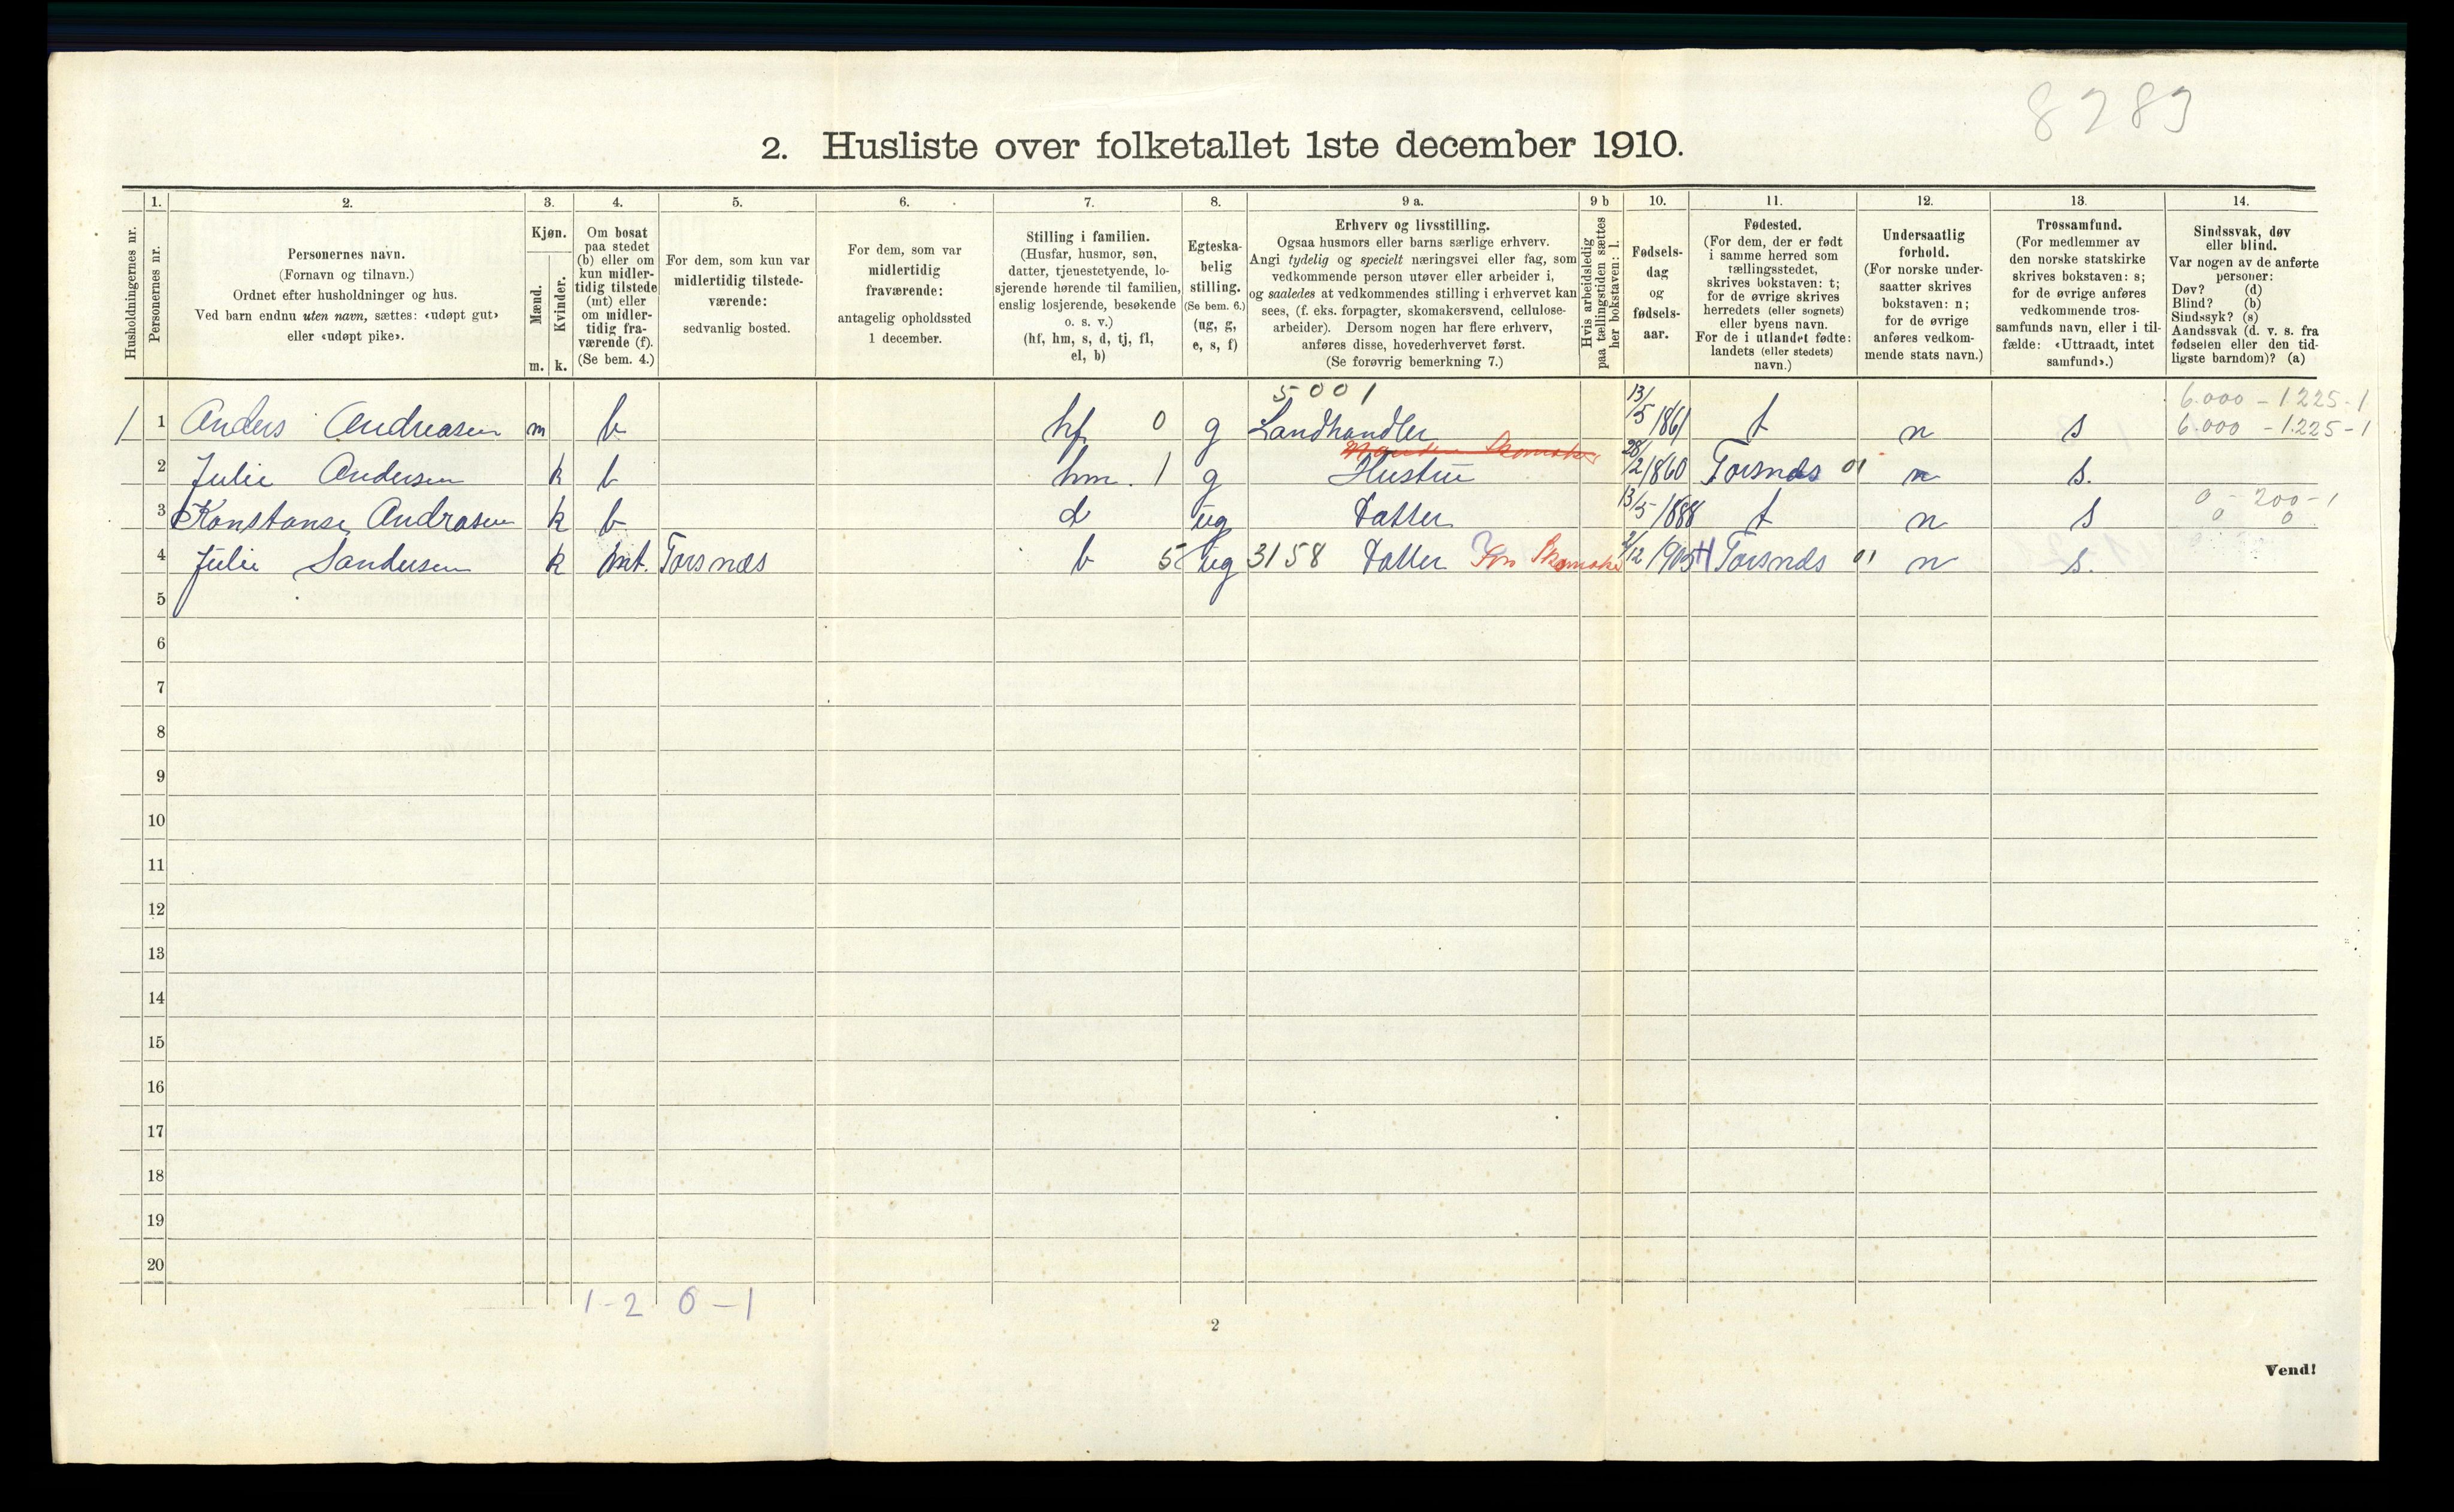 8283
2. Husliste over folketallet 1ste december 1910.
Husholdningernes nr.
1. Personernes nr.
2. Personernes navn.
(Fornavn og tilnavn.)
Ordnet efter husholdninger og hus.
Ved barn endnu uten navn, sættes: «udøpt gut»
eller «udøpt pike».
3. Kjøn.
Mænd. m.
Kvinder. k.
4. Om bosat
paa stedet
(b) eller om
kun midler-
tidig tilstede
(mt) eller
om midler-
tidig fra-
værende (f).
(Se bem. 4.)
5. For dem, som kun var
midlertidig tilstede-
værende:
sedvanlig bosted.
6. For dem, som var
midlertidig
fraværende:
antagelig opholdssted
1 december.
7. Stilling i familien.
(Husfar, husmor, søn,
datter, tjenestetyende, lo-
sjerende hørende til familien,
enslig losjerende, besøkende
o. s. v.)
(hf, hm, s, d, tj, fl,
el, b)
8. Egteska-
belig
stilling.
(Se bem. 6.)
(ug, g,
e, s, f)
9 a. Erhverv og livsstilling.
Ogsaa husmors eller barns særlige erhverv.
Angi tydelig og specielt næringsvei eller fag, som
vedkommende person utøver eller arbeider i,
og saaledes at vedkommendes stilling i erhvervet kan
sees, (f. eks. forpagter, skomakersvend, cellulose-
arbeider). Dersom nogen har flere erhverv,
anføres disse, hovederhvervet først.
(Se forøvrig bemerkning 7.)
9 b Hvis arbeidsledig
paa tællingstiden sættes
her bokstaven: l.
10. Fødsels-
dag
og
fødsels-
aar.
11. Fødested.
(For dem, der er født
i samme herred som
tællingsstedet,
skrives bokstaven: t;
for de øvrige skrives
herredets (eller sognets)
eller byens navn.
For de i utlandet fødte:
landets (eller stedets)
navn.)
12. Undersaatlig
forhold.
(For norske under-
saatter skrives
bokstaven: n;
for de øvrige
anføres vedkom-
mende stats navn.)
13. Trossamfund.
(For medlemmer av
den norske statskirke
skrives bokstaven: s;
for de øvrige anføres
vedkommende tros-
samfunds navn, eller i til-
fælde: «Uttraadt, intet
samfund».)
14. Sindssvak, døv
eller blind.
Var nogen av de anførte
personer:
Døv? (d)
Blind? (b)
Sindssyk? (s)
Aandssvak (d. v. s. fra
fødselen eller den tid-
ligste barndom)? (a)
5001 6.000 - 1.225 - 1
1 1 Anders Andreasen m b hf 0 g Landhandler 13/5 1861 t n s 6.000 - 1.225 - 1
2 Julie Andersen k b hm. 1 g Hustru 28/12 1860 Torsnæs 01 n s.
3 Konstanse Andrasen k b d ug Datter 13/5 1888 t n s 0 - 200 - 1
0 0
4 Julie Sandersen k mt. Torsnæs b 5 ug 3158 Datter For Skomaker 2/12 1905 H Torsnæs 01 n s.
5
6
7
8
9
10
11
12
13
14
15
16
17
18
19
20
1 - 2 0 - 1
2
Vend!